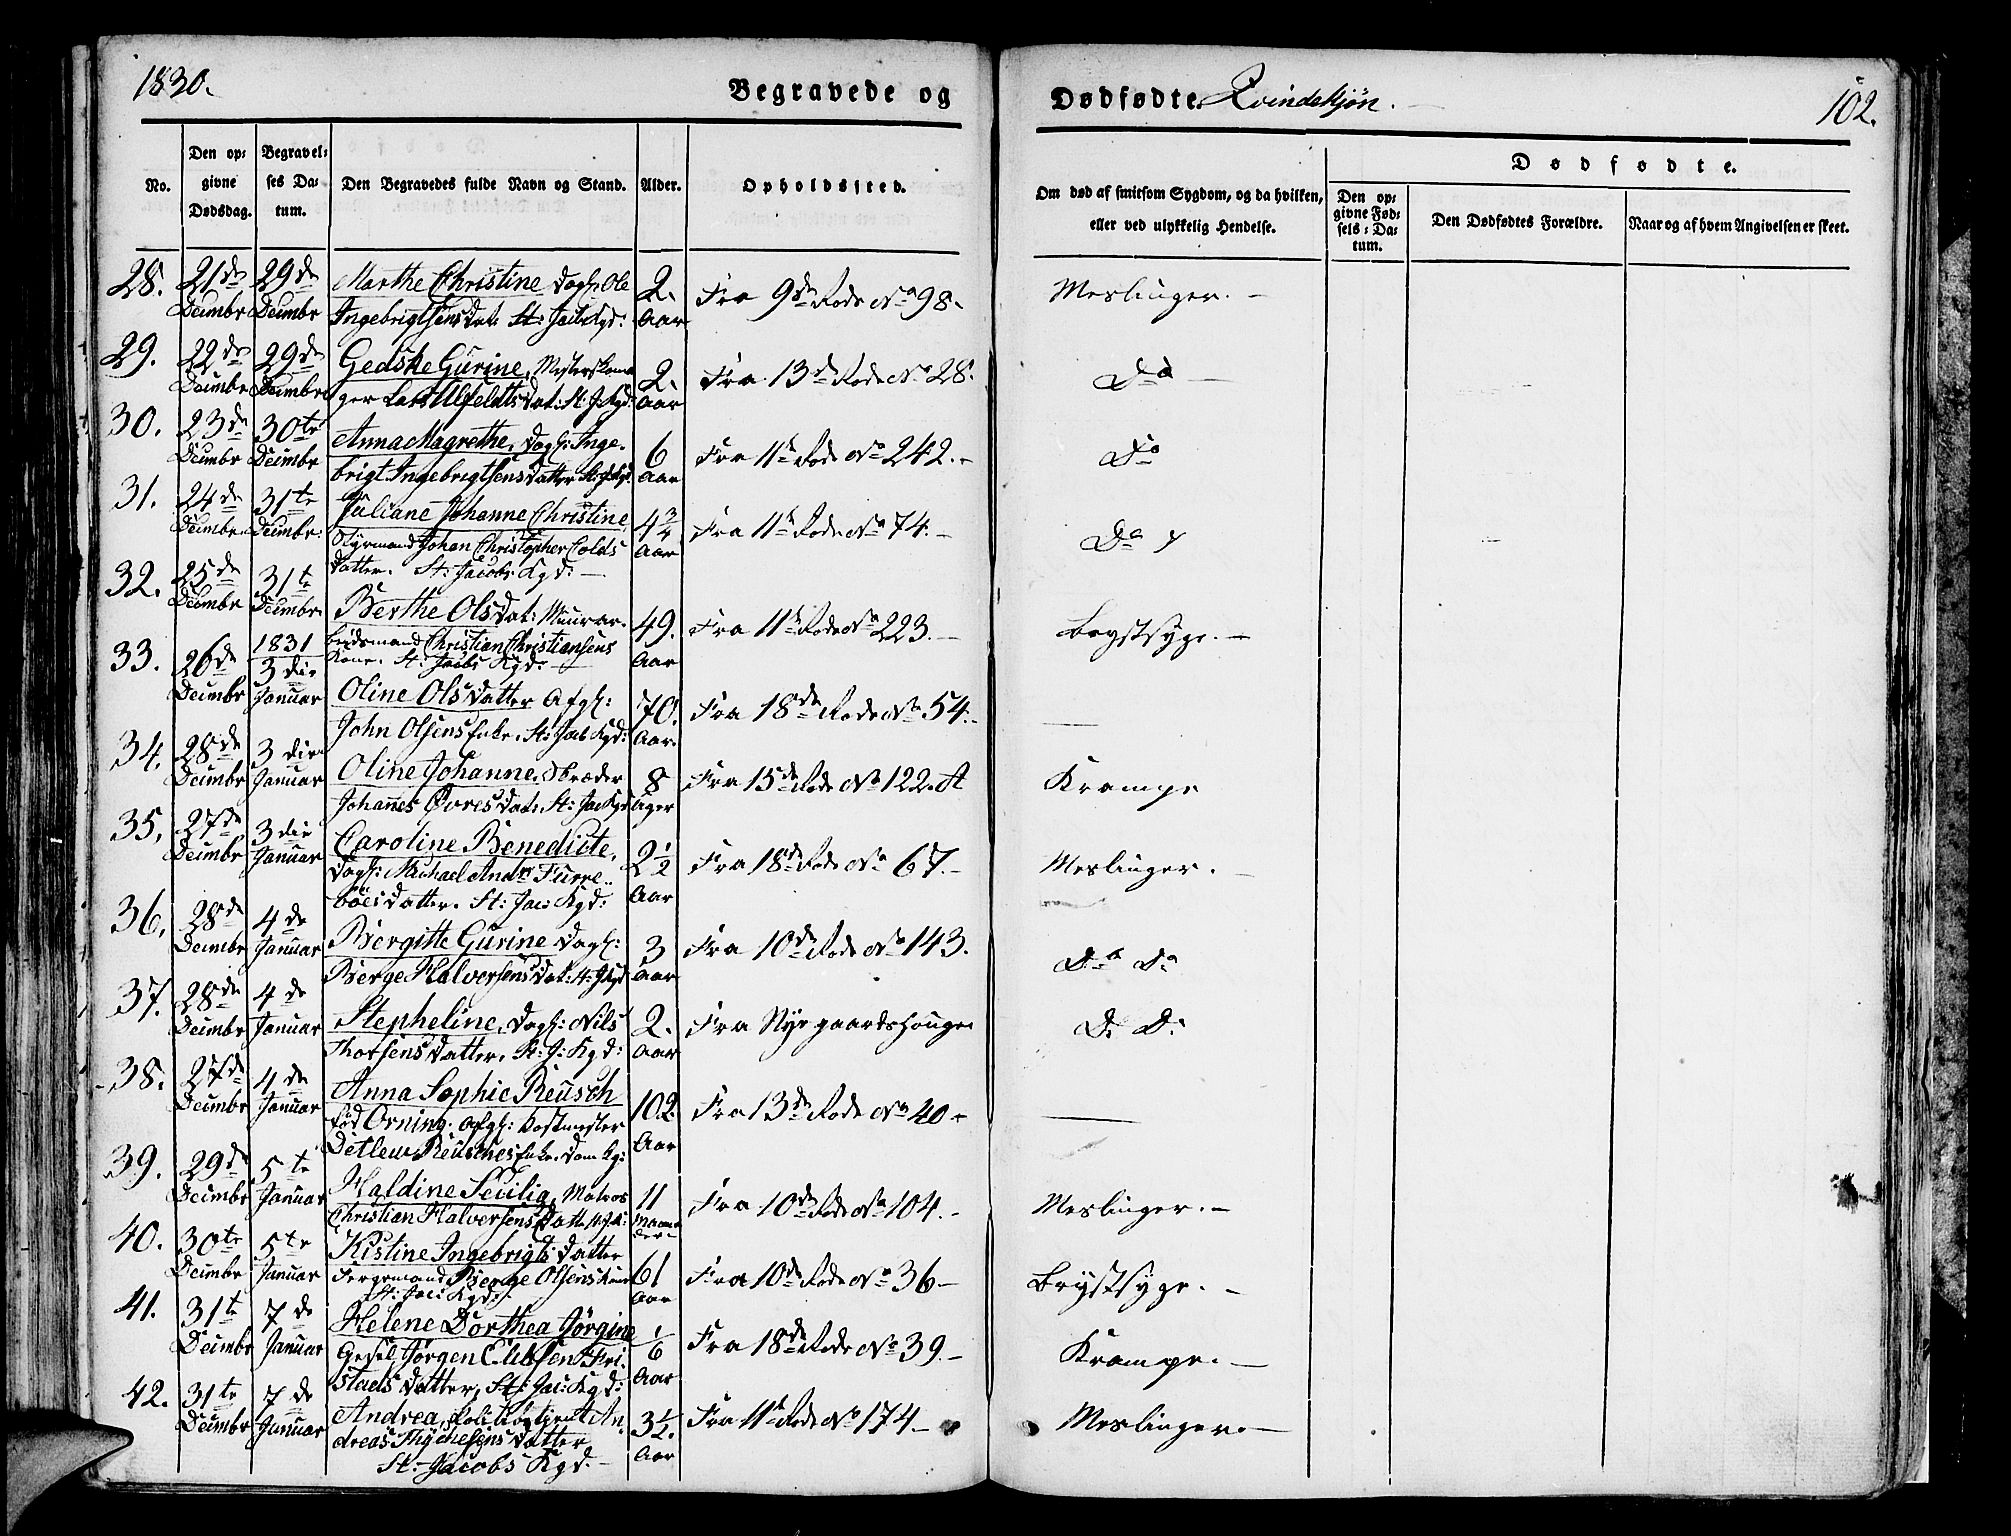 1830.
Begravede og
Dødfødte Qvindekjøn.
102.
No.
Den opgivne Dødsdag.
Begravelses Datum.
Den Begravedes fulde Navn og Stand.
Alder.
Opholdssted.
Om død af smitsom Sygdom, og da hvilken, eller ved ulykkelig Hendelse.
Dødfødte.
Den opgivne Fødsels-Datum.
Den Dødfødtes Forældre.
Naar og af hvem Angivelsen er skeet.
28. 21de Decmbr 29de Decmbr Marthe Christine Dagl: Ole
Ingebrigtsens Dat: St: Jacb Kgd: 2. Aar Fra 9de Rode No 98. Meslinger.
29. 22de Decmbr 29de Decmbr Gedske Gurine, Mesterskoma
ger Lars Ulfeldts Dat: St: J: Kgd: 2. Aar Fra 13de Rode No 28. Do
30. 23de Decmbr 30te Decmbr Anna Magrethe, Dagl: Inge-
brigt Ingebrigtsens Datter St: J: Kgd: 6 Aar Fra 11te Rode No 242. Do
31. 24de Decmbr 31te Decmbr: Juliane Johanne Christine,
Styrmand Johan Christopher Colds
Datter. St: Jacobs Kgd: 4 3/4 Aar Fra 11te Rode No 74. Do
32. 25de Decmbr 31te Decmbr. Berthe Olsdat: Muurar-
beidsmand Christian Christiansens
Kone. St: Jacbs Kgd: 49. Aar Fra 11te Rode No 223. Brystsyge.
33. 26de Decmbr 1831 3die Januar Oline Olsdatter Afgl:
John Olsens Enke. St: Jacb Kgd: 70. Aar. Fra 18de Rode No 54.
34. 28de Decmbr 3die Januar Oline Johanne, Stræder
Johannes Øvres Dat: St: Jac Kgd 8 Uger Fra 15de Rode No 122. A Krampe
35. 27de Decmbr 3die Januar Caroline Benedicte,
Dagl: Michael Andrs Furre-
böes Datter. St: Jac: Kgd: 2 1/2 Aar Fra 18de Rode No 67. Meslinger.
36. 28de Decmbr 4de Januar Bergitte Gurine Dagl:
Berge Halvorsens Dat: St: J Kgd 3 Aar Fra 10de Rode No 143. Do Do
37. 28de Decmbr 4de Januar Stepheline, Dagl: Nils
Thorsens Datter. St: J: Kgd: 2. Aar Fra Nyegaardshougen Do Do
38. 27de Decmbr 4de Januar Anna Sophie Reusch
fød Orning. Afgl: Postmester
Detlew Reusches Enke. Dom Kg: 102 Aar Fra 13de Rode No 40
39. 29de Decmbr 5te Januar Haldine Secilia, Matros
Christian Halversens Datt: St: J: K: 11 Maaneder Fra 10de Rode No 104. Meslinger.
40. 30te Decmbr 5te Januar Kistine Ingebrigts Datter
Fergemand Berge Olsens Kone
St: Jac: Kgd: 61 Aar Fra 10de Rode No 36 Brystsyge.
41. 31te Decmbr 7de Januar Helene Dorthea Jørgine
Gesel Jørgen Eliesen Fri-
stads Datter, St: Jac: Kgd: 1/6 Aar Fra 18de Rode No 39. Krampe.
42. 31te Decmbr 7de Januar Andrea, Politibetjent An-
dreas Thychesens Datter
St: Jacobs Kgd. 3 1/2. Aar Fra 11te Rode No 174 Meslinger.